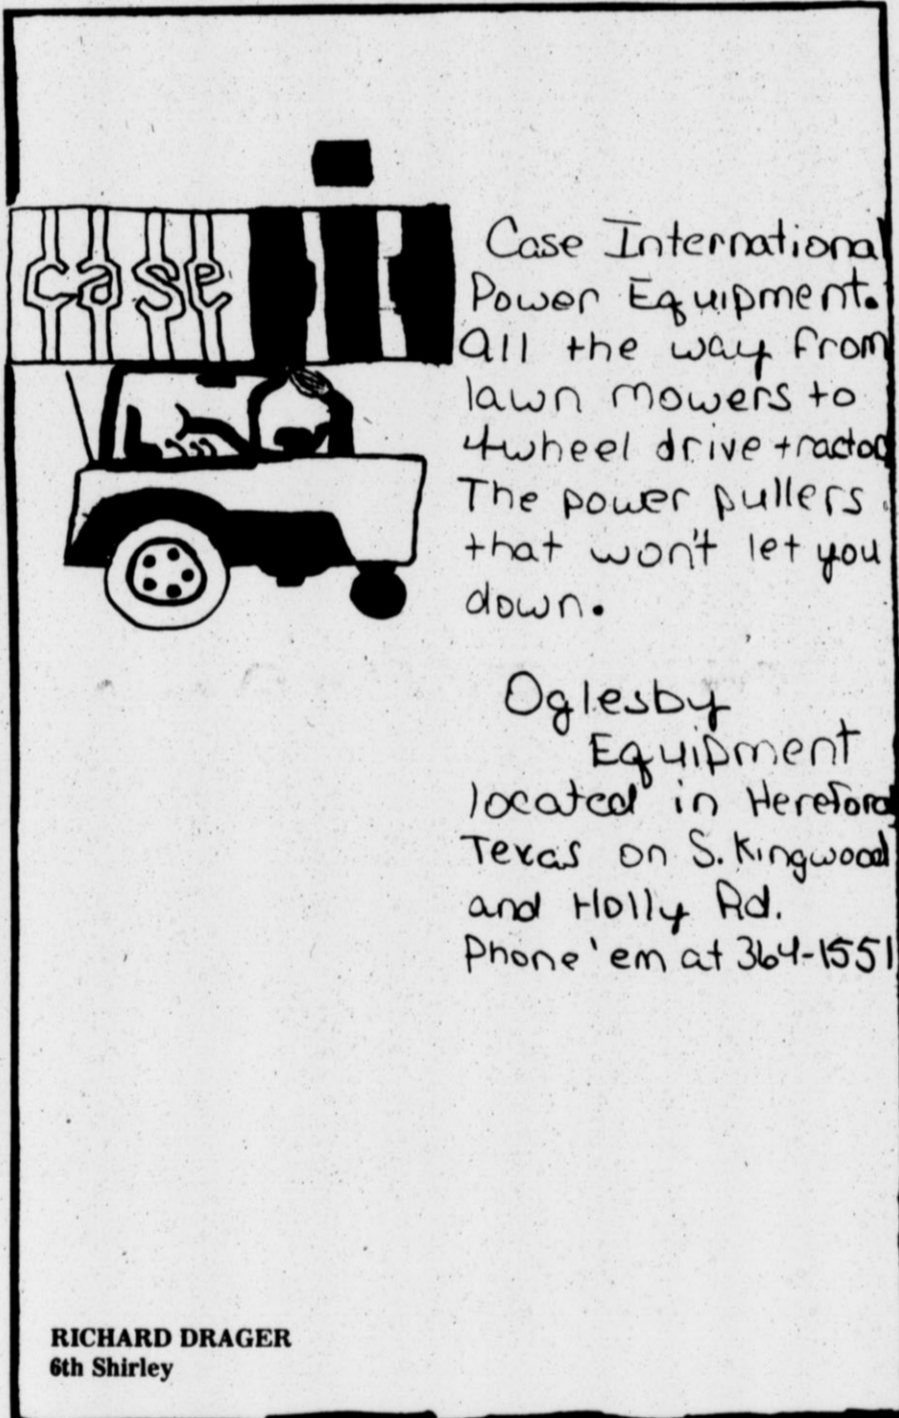 case
Case International
Power Equipment.
All the way from
lawn mowers to
4wheel drive tractor
The power pullers
that won't let you
down.
Oglesby
Equipment
located in Hereford
Texas on S. Kingwood
and Holly Rd.
Phone 'em at 364-1551
RICHARD DRAGER
6th Shirley